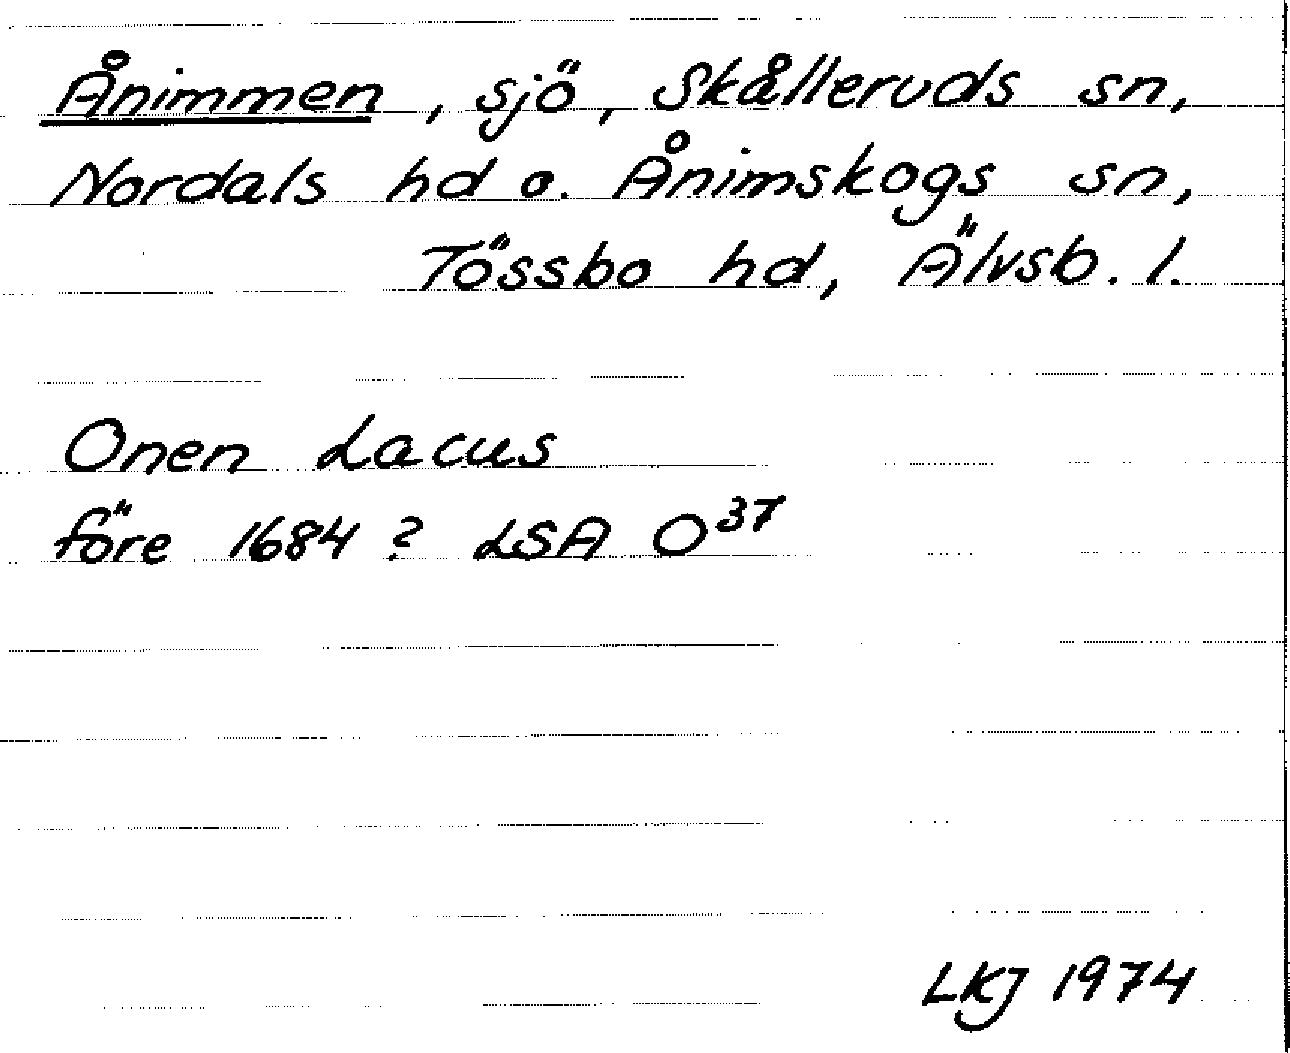 Ånimmen, sjö, Skålleruds sn,
Nordals hd o. Ånimskogs sn,
Tössbo hd, Älvsb. l.
Onen Lacus
före 1684? LSA O³⁷
LKJ 1974